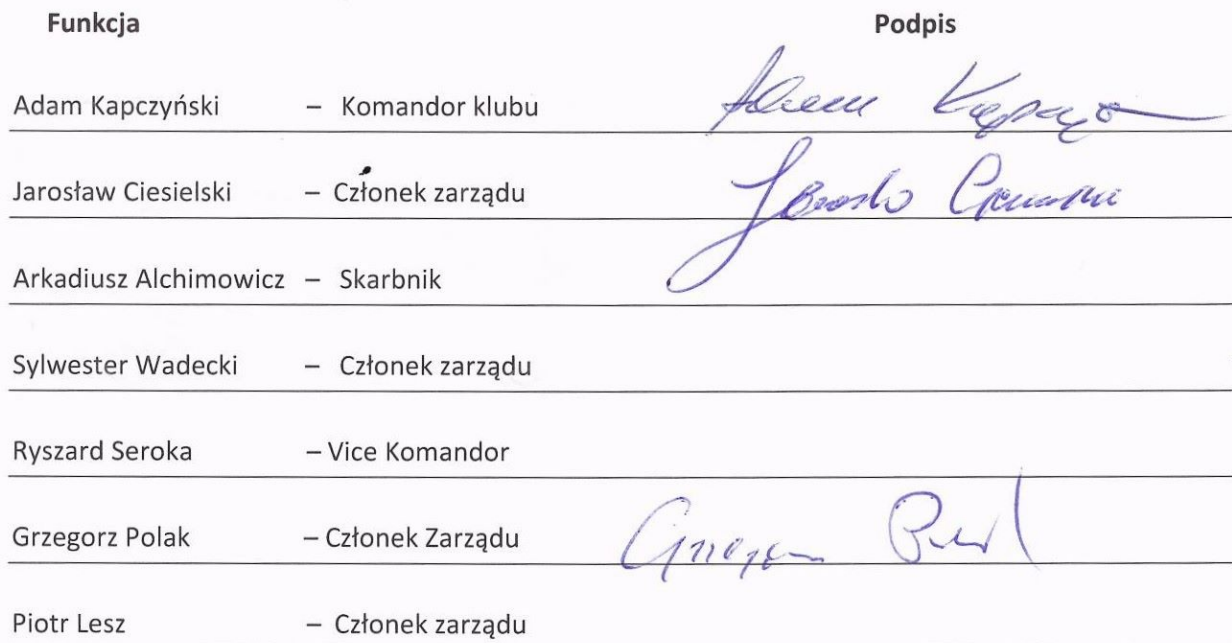 Funkcja Podpis
Adam Kapczyński – Komandor klubu Adam Kapczyń
Jarosław Ciesielski – Członek zarządu
Arkadiusz Alchimowicz – Skarbnik
Sylwester Wadecki – Członek zarządu
Ryszard Seroka – Vice Komandor
Grzegorz Polak – Członek Zarządu Grzegorz
Piotr Lesz – Członek zarządu